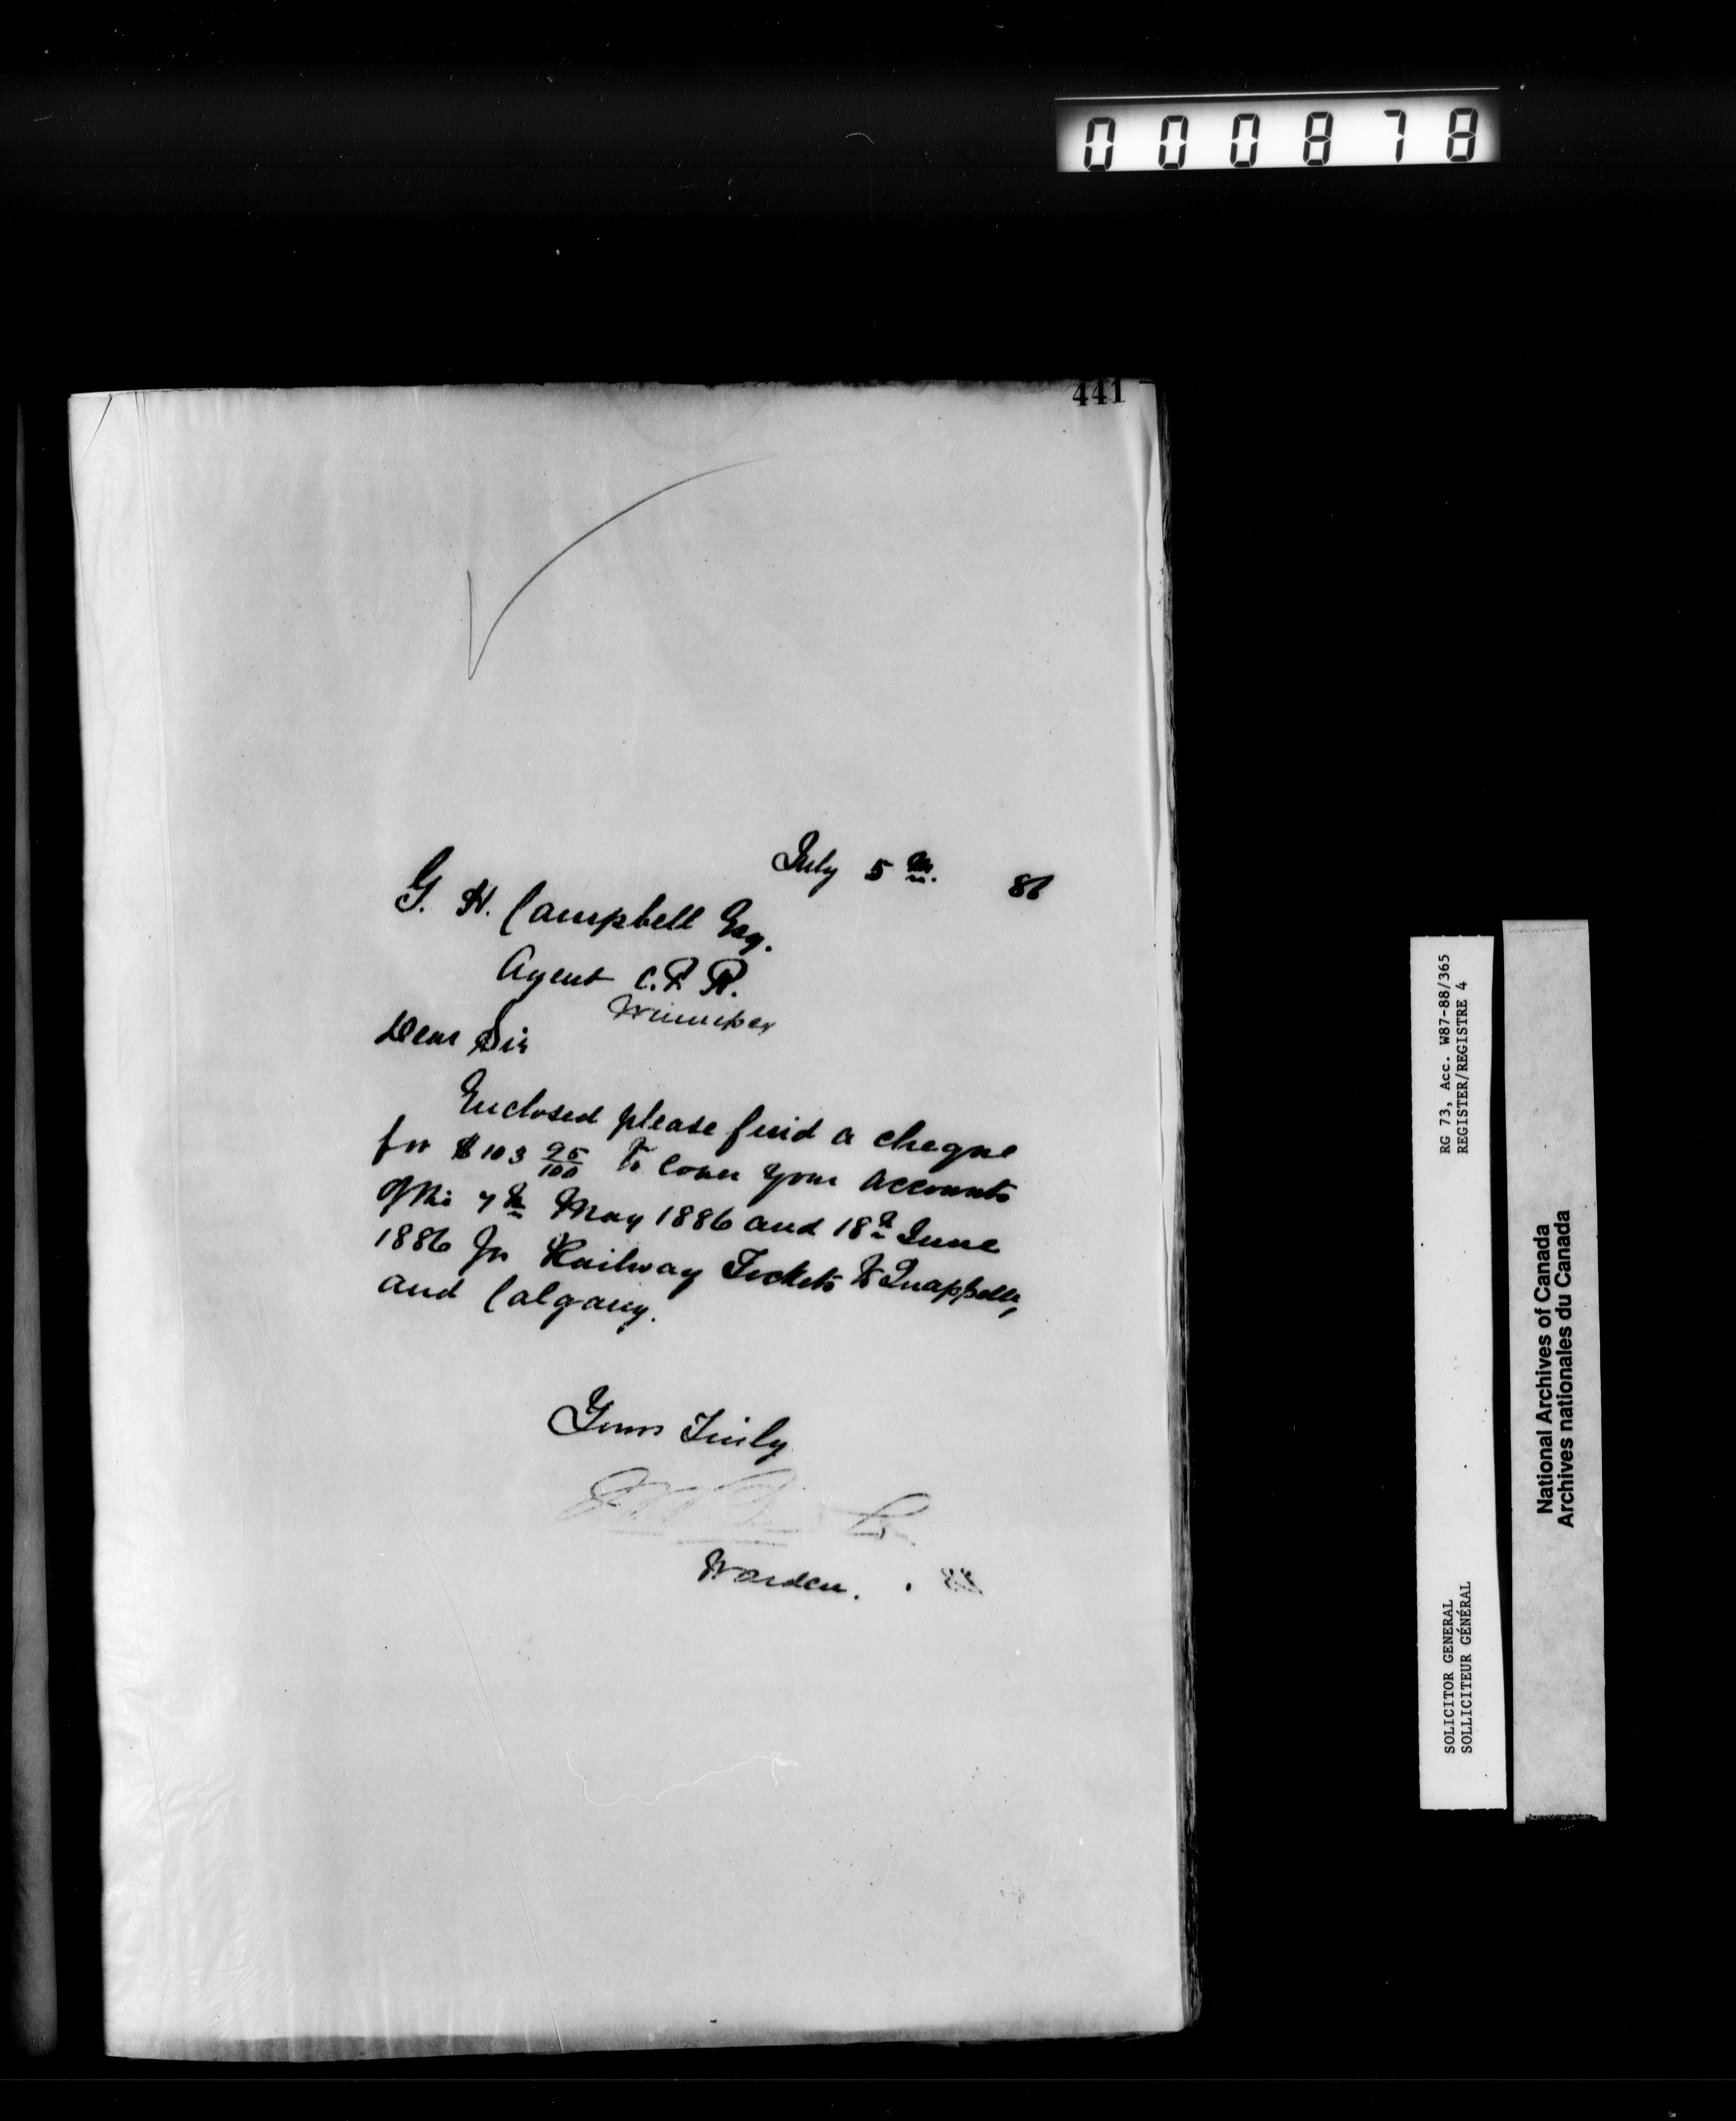 000878
441
July 5th. 86
G. H. Campbell Esq.
Agent C.P.R.
Winnipeg
Dear Sir
Enclosed please find a cheque
for $103 25/100 To cover your accounts
of the 7th May 1886 and 18th June
1886 for Railway Tickets to Quappelle,
and Calgary.
Yours Truly
Warden.
RG 73, Acc. W87-88/365
REGISTER/REGISTRE 4
SOLICITOR GENERAL
SOLLICITEUR GÉNÉRAL
National Archives of Canada
Archives nationales du Canada